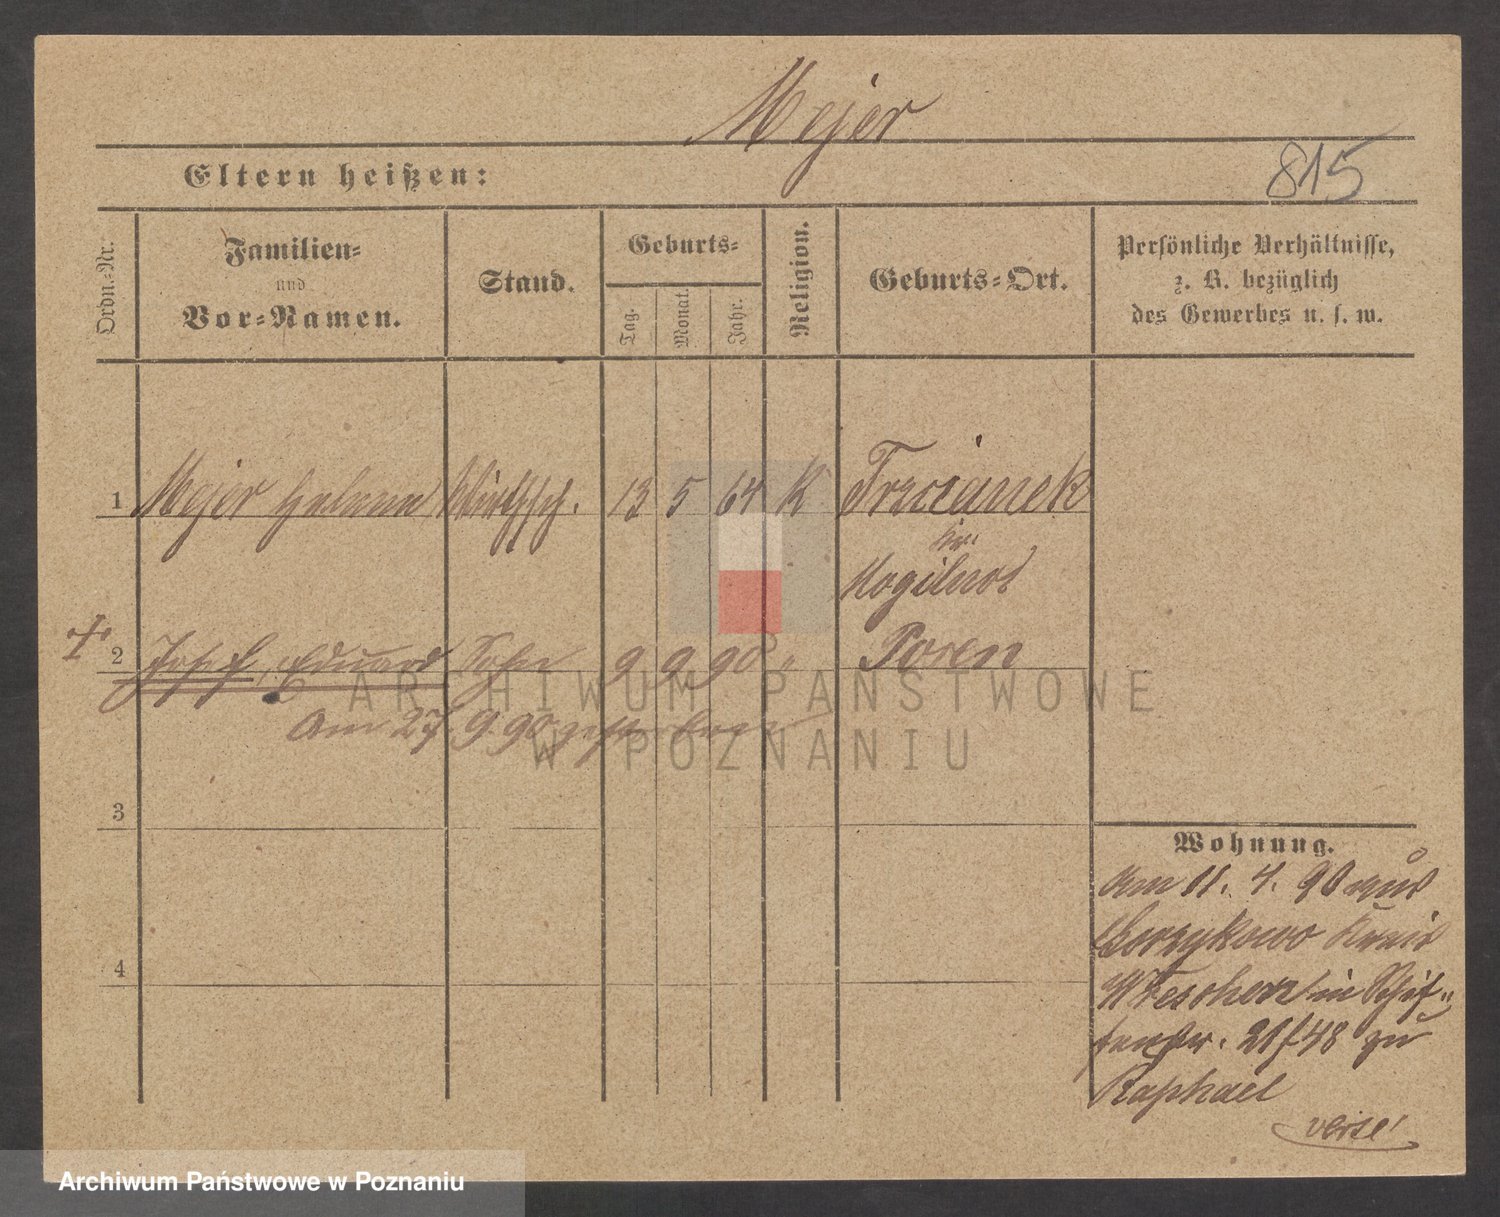 Mejer
815
Eltern heißen:
Ordn.-Nr.
Familien-
und
Vor-Namen.
Stand.
Geburts-
Tag.
Monat.
Jahr.
Religion.
Geburts-Ort.
Persönliche Verhältnisse,
z. B. bezüglich
des Gewerbes u. s. w.
1 Mejer Helena Wirthsch. 13 5 64 K Trzcianek
Kr.
Mogilno
2 Josef, Eduard Sohn 9 9 90 " Posen
Am 27. 9. 90 gestorben
3
4
Wohnung.
Am 11. 4. 90 aus
Gorzykowo Kreis
Wreschen in Schif-
ferstr. 21/48 zu
Raphael
verse!
ARCHIWUM PAŃSTWOWE
W POZNANIU
Archiwum Państwowe w Poznaniu